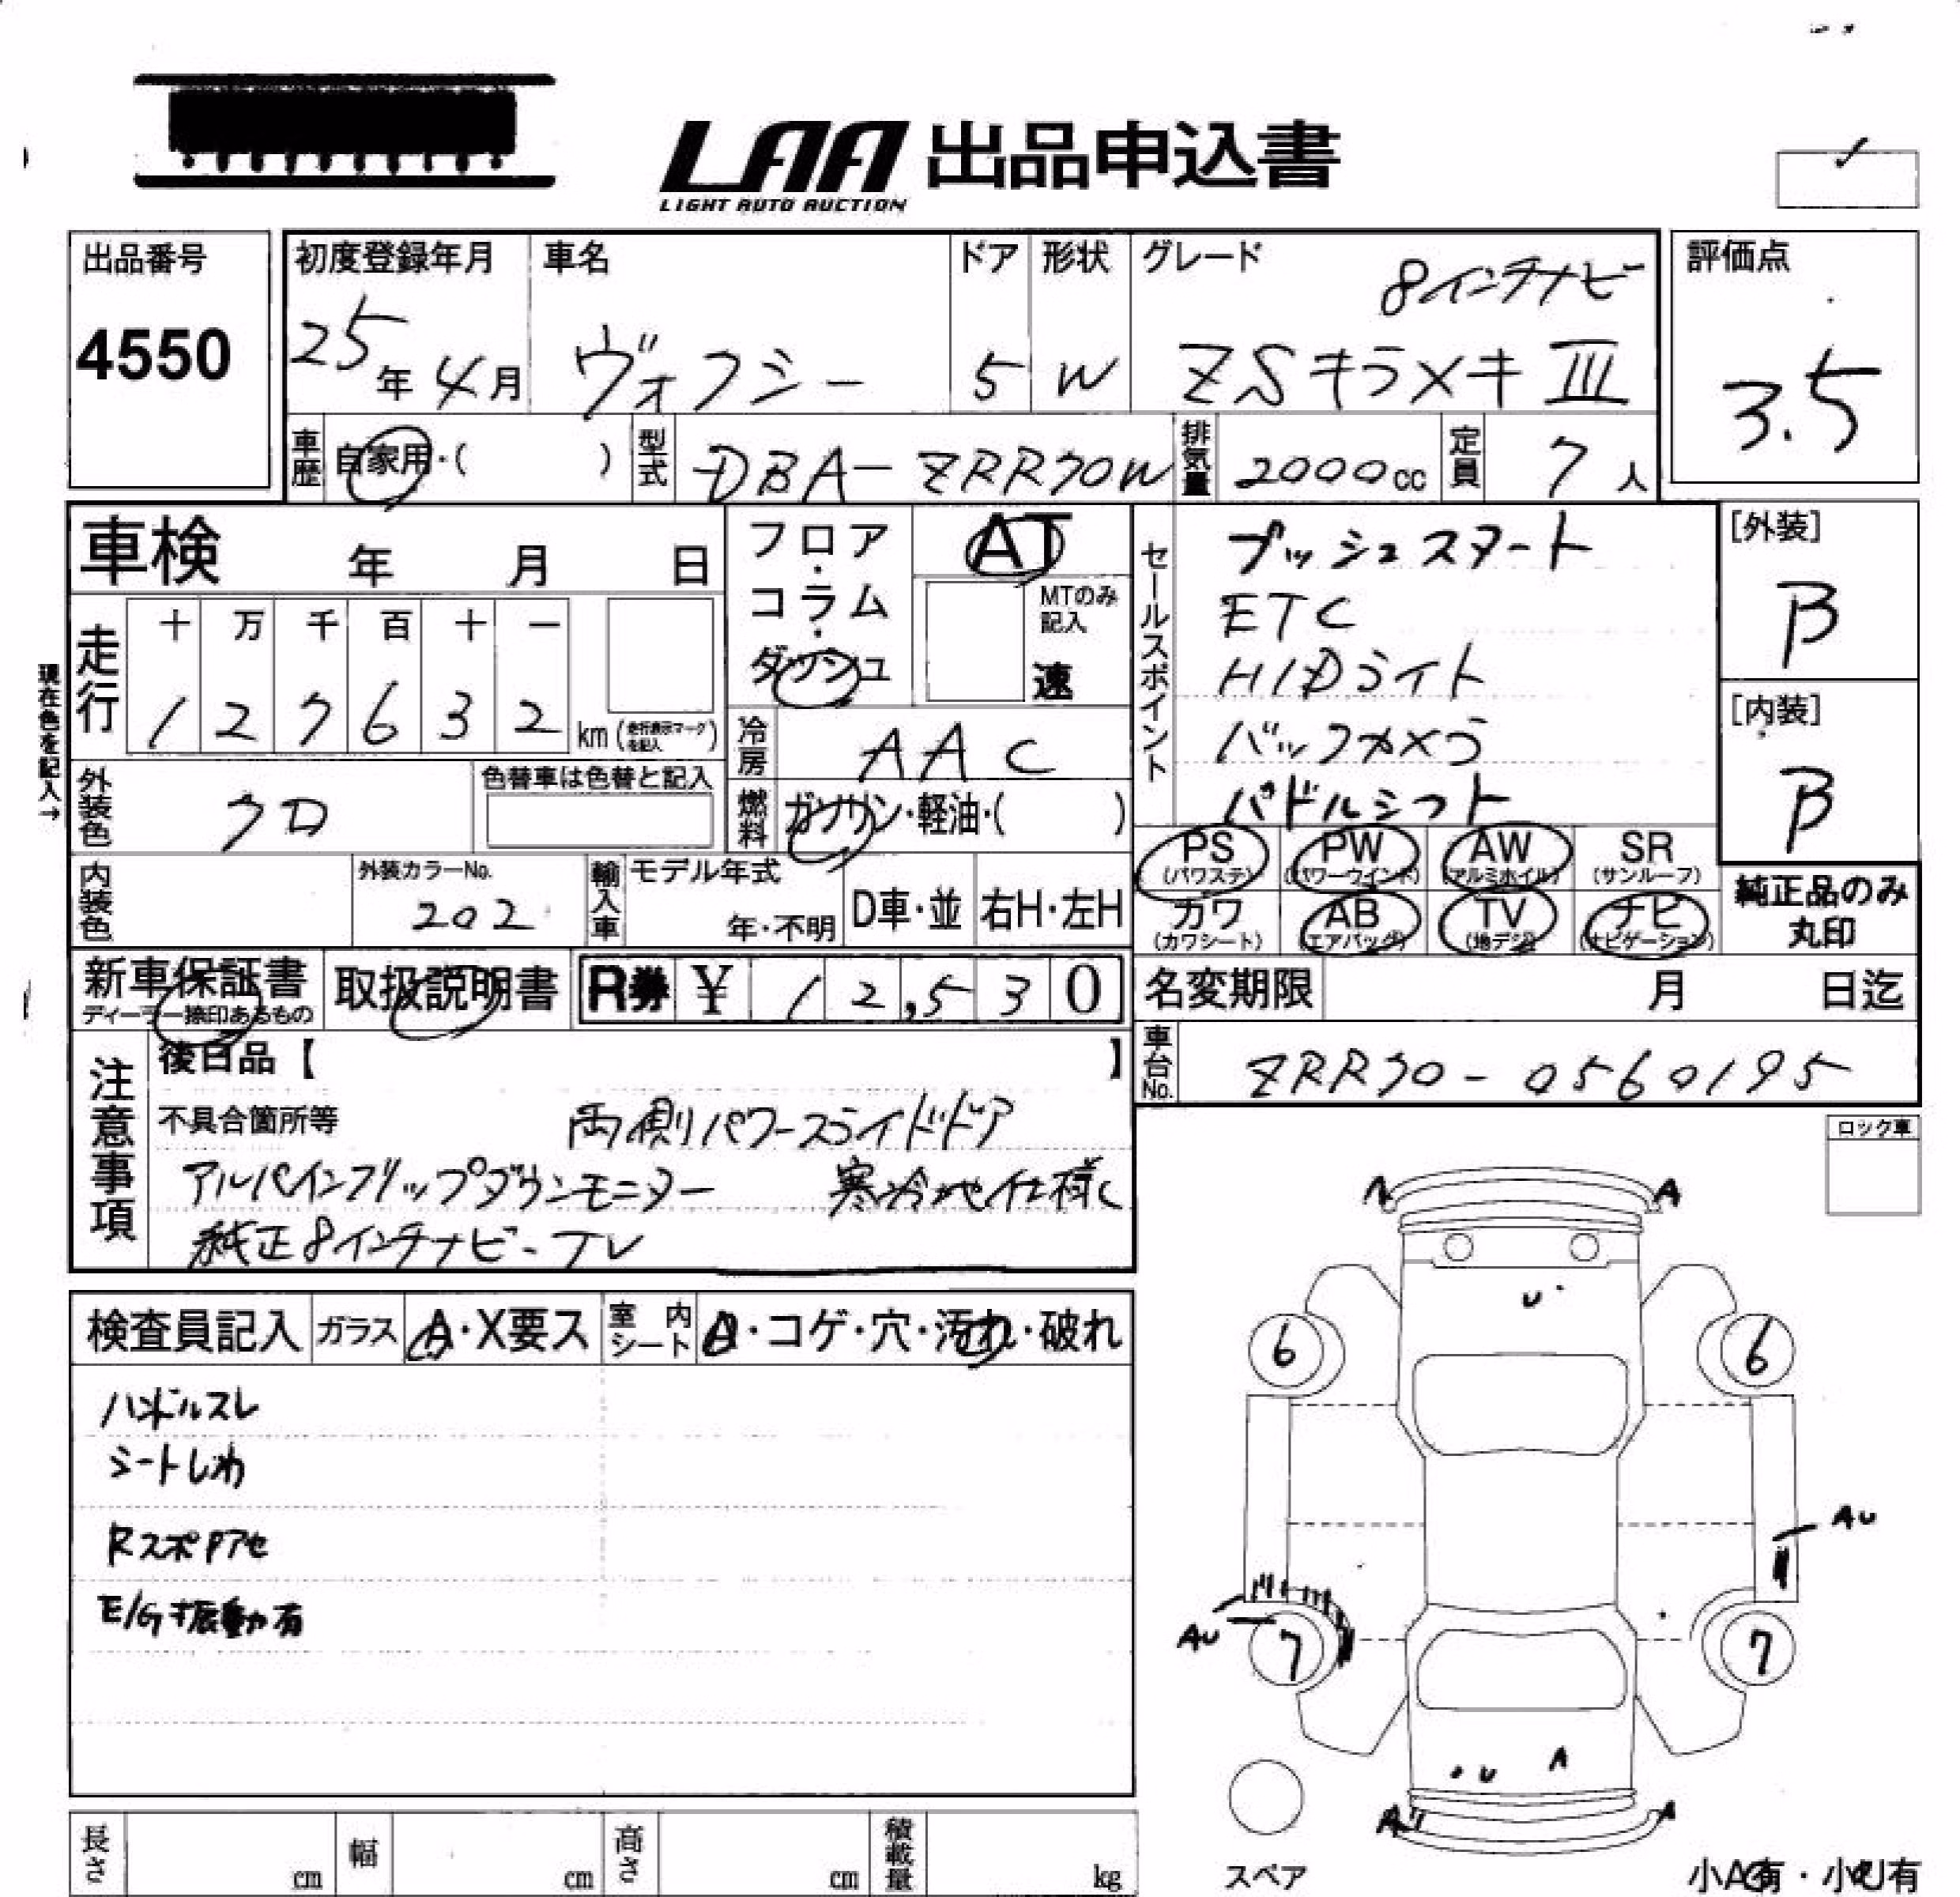 LAA 出品申込書
LIGHT AUTO AUCTION
出品番号
4550
初度登録年月
25年 4月
車名
ヴォクシー
ドア
5
形状
W
グレード
8インチナビ
ZSキラメキ III
評価点
3.5
車歴
自家用・( )
型式
DBA-ZRR70W
排気量
2000cc
定員
7人
車検 年 月 日
フロア・コラム・ダッシュ
AT
MTのみ記入
速
セールスポイント
プッシュスタート
ETC
HIDライト
バックカメラ
パドルシフト
[外装]
B
[内装]
B
現在色を記入→
走行
十 万 千 百 十 一
1 2 7 6 3 2 km (走行表示マークを記入)
冷房
AAC
外装色
クロ
色替車は色替と記入
燃料
ガソリン・軽油・( )
PS (パワステ)
PW (パワーウインド)
AW (アルミホイル)
SR (サンルーフ)
カワ (カワシート)
AB (エアバッグ)
TV (地デジ)
ナビ (ナビゲーション)
純正品のみ
丸印
内装色
外装カラーNo.
202
輸入車
モデル年式
年・不明
D車・並
右H・左H
新車保証書
ディーラー捺印あるもの
取扱説明書
R券 ¥ 12,530
名変期限 月 日迄
車台No.
ZRR70-0560195
注意事項
後日品【 】
不具合箇所等 両側パワースライドドア
アルパインフリップダウンモニター 寒冷地仕様
純正8インチナビ-TV
ロック車
検査員記入
ガラス
A・X要ス
室内シート
・コゲ・穴・汚れ・破れ
ハンドルスレ
シートしわ
Rスポアセ
E/G振動有
A A
U
6 6
AU
AU
7 7
U A
A A
スペア
小A有・小U有
長さ cm
幅 cm
高さ cm
積載量 kg